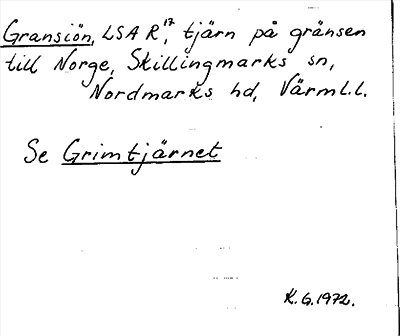 Gransiön, LSA R¹⁷, tjärn på gränsen
till Norge, Skillingmarks sn,
Nordmarks hd, Värml.l.
Se Grimtjärnet
K.G.1972.